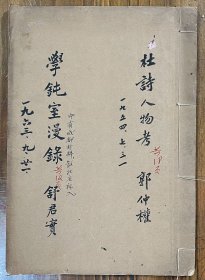 杜詩人物考
郭仲權
一九五四、七、三一
學鈍室漫錄
舒君實
一九六三、九、廿一